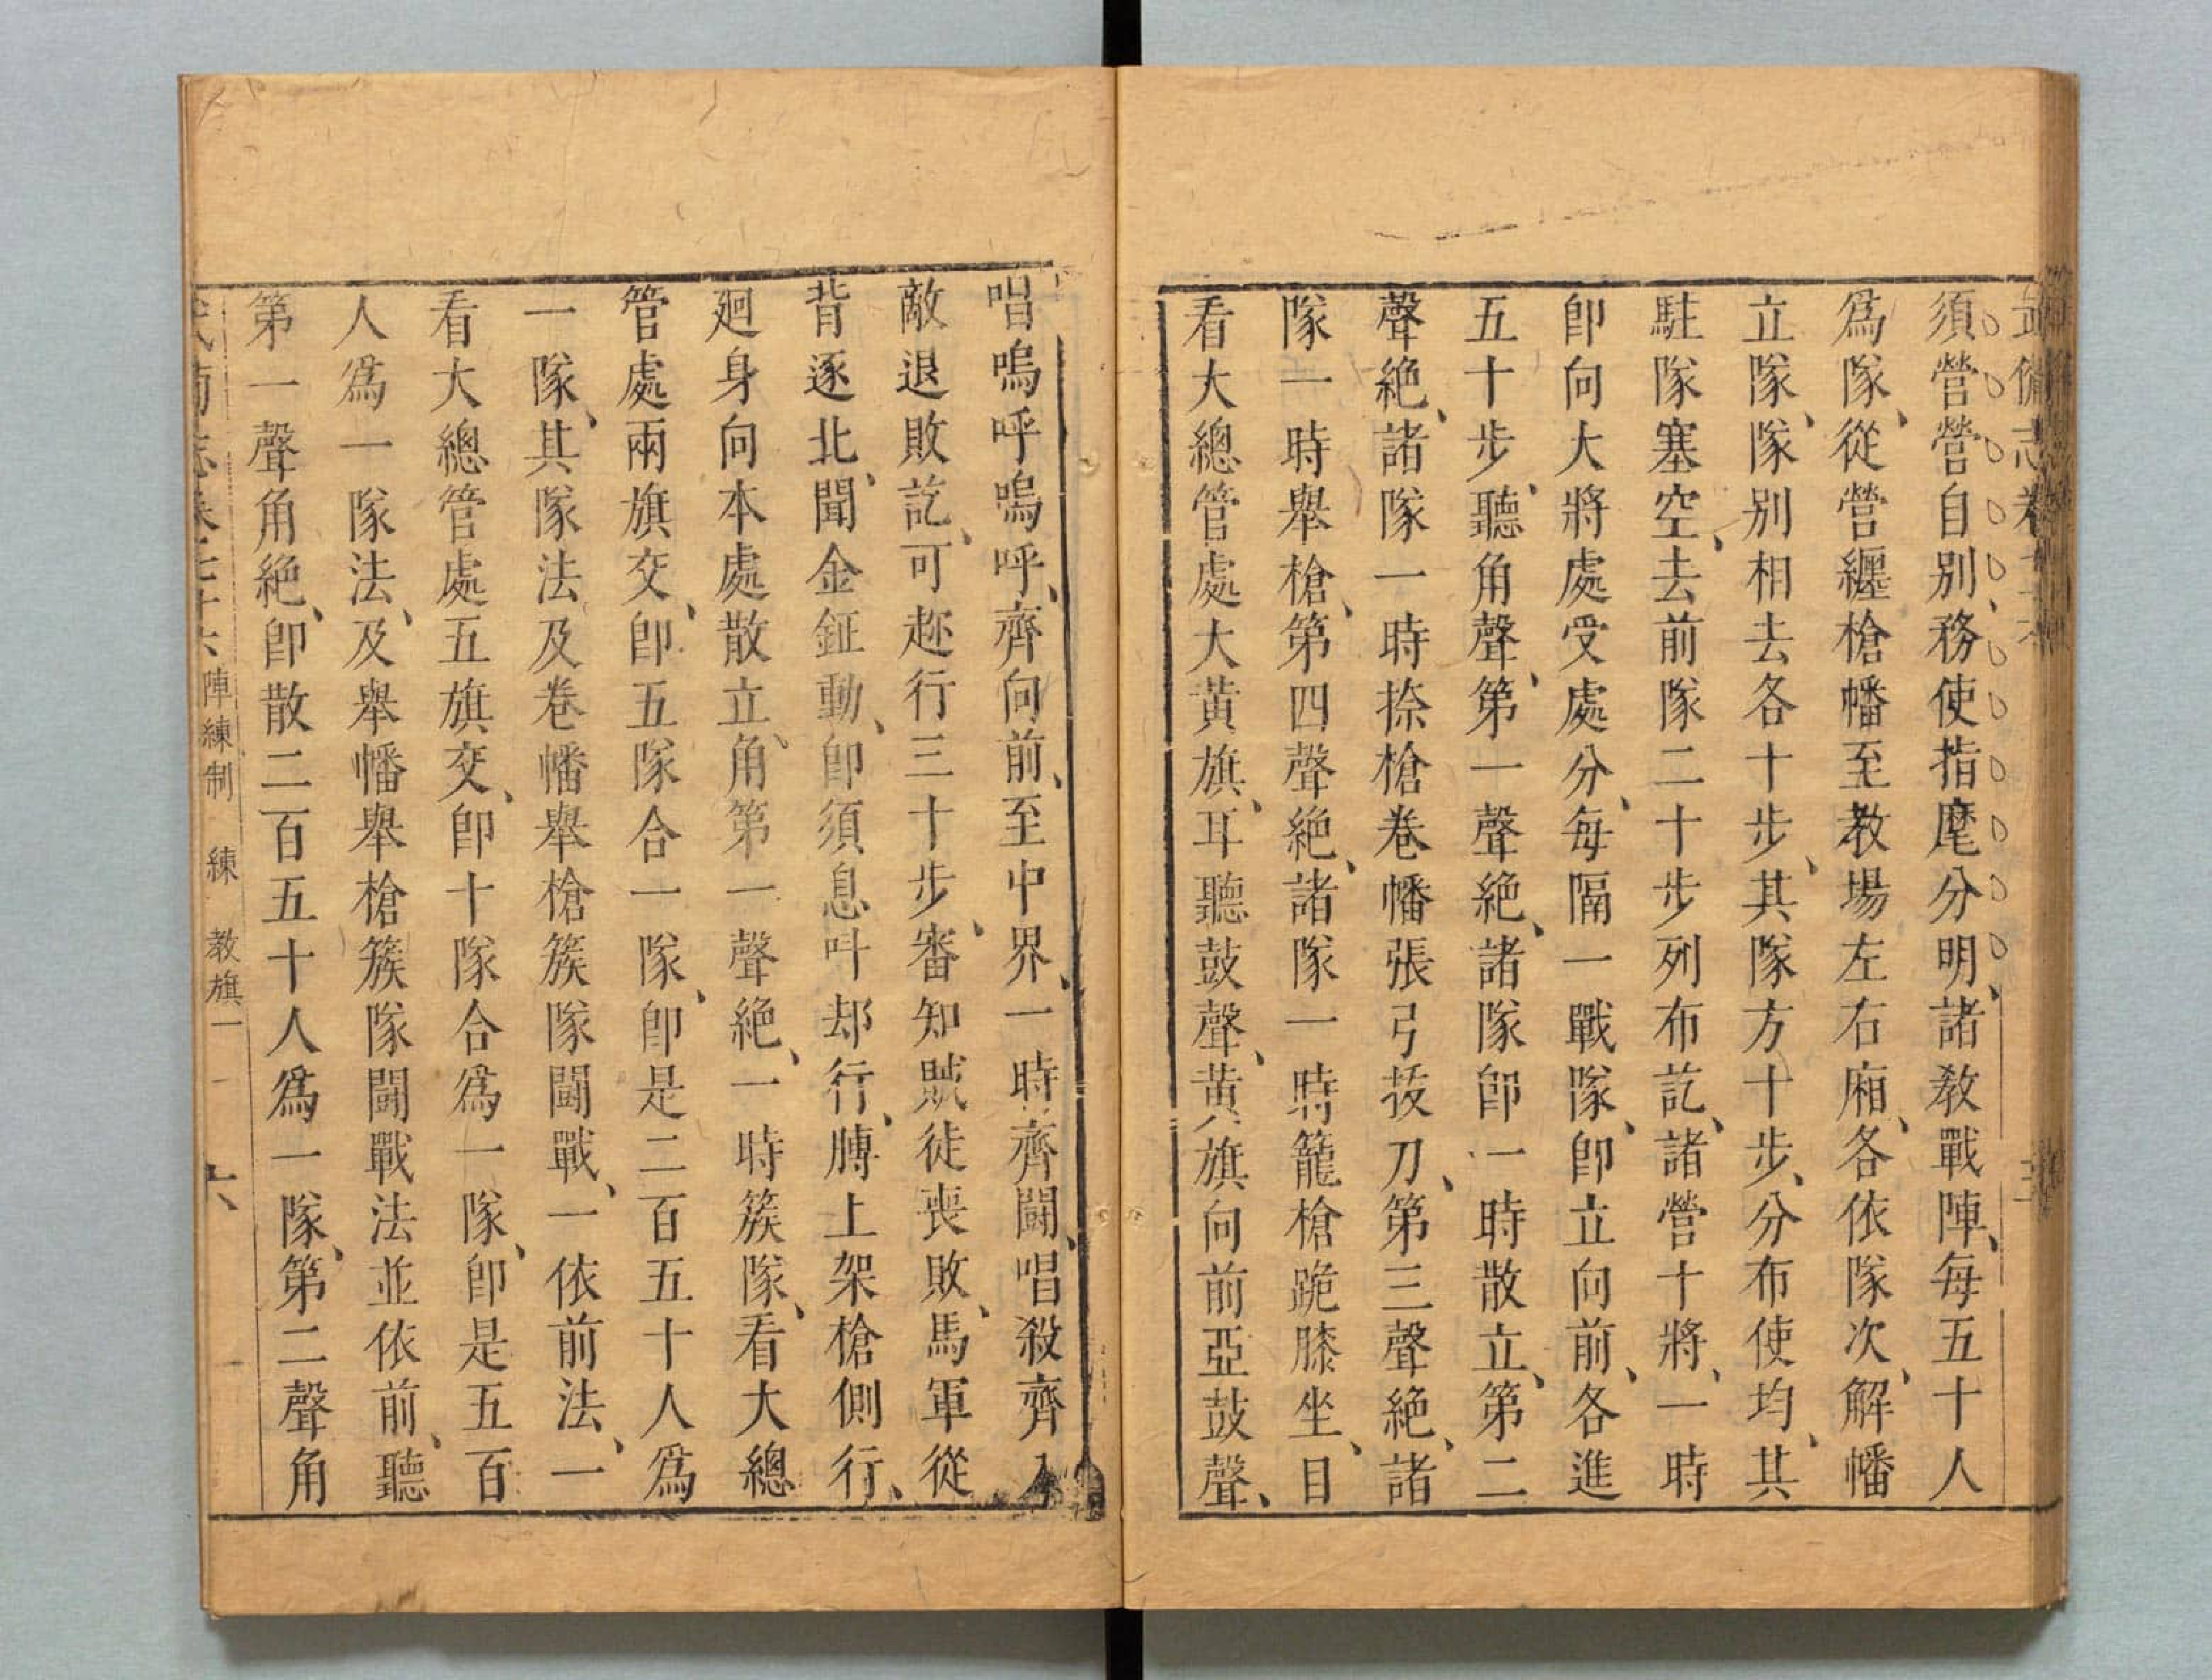 須營營自別、務使指麾分明、諸教戰陣、每五十人
爲隊、從營纏槍幡至教場左右廂、各依隊次、解幡
立隊、隊別相去各十步、其隊方十步、分布使均、其
駐隊塞空、去前隊二十步列布訖、諸營十將、一時
卽向大將處受處分、每隔一戰隊、卽立向前、各進
五十步、聽角聲、第一聲絕、諸隊卽一時散立、第二
聲絕、諸隊一時捺槍卷幡張弓拔刀、第三聲絕、諸
隊一時舉槍、第四聲絕、諸隊一時籠槍跪膝坐、目
看大總管處大黃旗、耳聽鼓聲、黃旗向前亞鼓聲、
唱嗚呼嗚呼、齊向前、至中界、一時齊鬭、唱殺齊入
敵退敗訖、可趂行三十步、審知賊徒喪敗、馬軍從
背逐北、聞金鉦動、卽須息叫却行、膊上架槍側行、
廻身向本處散立、角第一聲絕、一時簇隊、看大總
管處兩旗交、卽五隊合一隊、卽是二百五十人爲
一隊、其隊法及卷幡舉槍簇隊鬭戰、一依前法、一
看大總管處五旗交、卽十隊合爲一隊、卽是五百
人爲一隊法、及舉幡舉槍簇隊鬭戰法並依前、聽
第一聲角絕、卽散二百五十人爲一隊、第二聲角
陣練制 練 教旗一 六